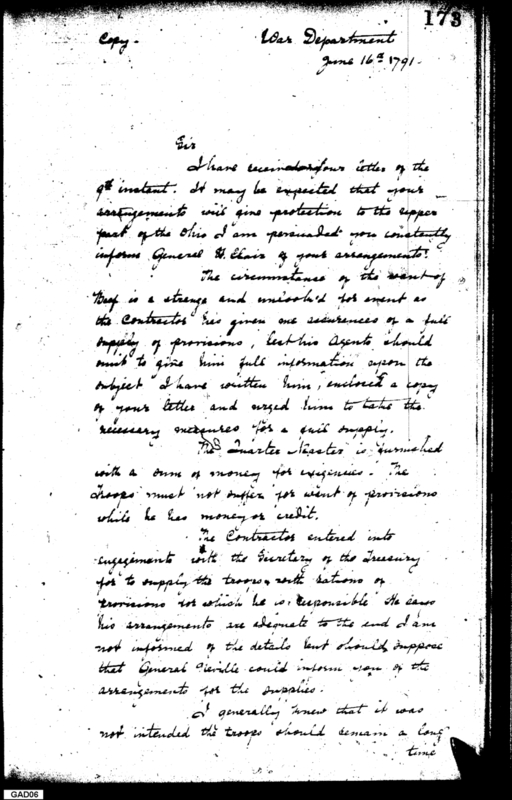 173
Copy.
War Department
June 16th 1791.
Sir
I have received your letter of the
9th instant. It may be expected that your
arrangements will give protection to the upper
part of the Ohio I am persuaded you constantly
inform General St. Clair of your arrangements.
The circumstance of the want of
Beef is a strange and unlook'd for event as
the Contractor has given me assurences of a full
supply of provisions, lest his Agents should
omit to give him full information upon the
subject I have written him, enclosed a copy
of your letter and urged him to take the
necessary measures for a full supply.
The Quarter Master is furnished
with a sum of money for exigencies. The
Troops must not suffer for want of provisions
while he has money or credit.
The Contractor entered into
engagements with the Secretary of the Treasury
for to supply the troops with rations of
provisions for which he is responsible He says
his arrangements are adequate to the end I am
not informed of the details but should suppose
that General Neville could inform you of the
arrangements for the supplies.
I generally knew that it was
not intended the troops should remain a long
time
GAD06